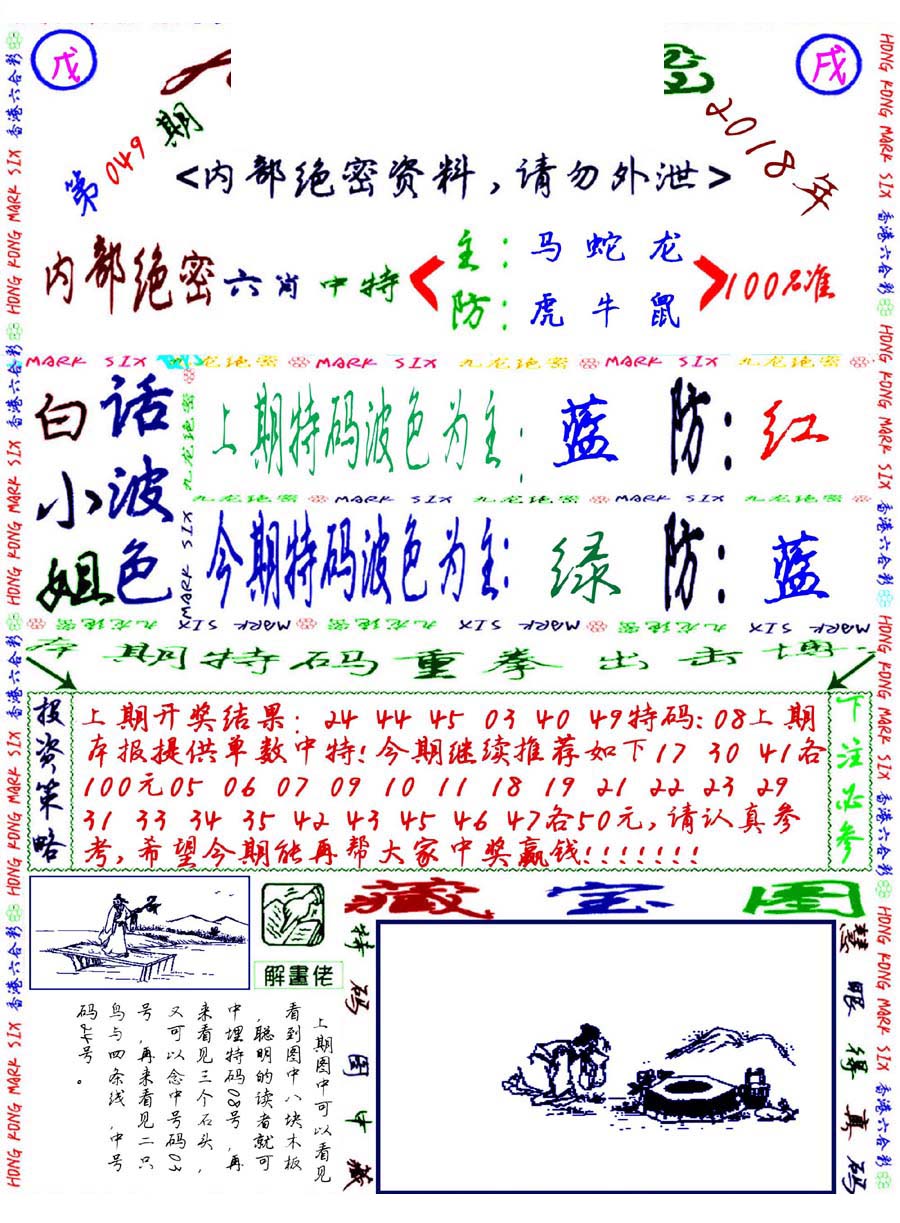 戊
戌
第049期
2018年
<内部绝密资料，请勿外泄>
内部绝密六肖中特
主：马 蛇 龙
防：虎 牛 鼠
100%准
MARK SIX 九龙绝密 MARK SIX 九龙绝密 MARK SIX 九龙绝密
白话
小波
姐色
上期特码波色为主：蓝 防：红
九龙绝密 MARK SIX 九龙绝密 MARK SIX 九龙绝密
今期特码波色为主：绿 防：蓝
九龙绝密 MARK SIX 九龙绝密 MARK SIX 九龙绝密 MARK SIX
期特码重拳出击博
投资策略
上期开奖结果：24 44 45 03 40 49特码：08上期
本报提供单数中特！今期继续推荐如下17 30 41各
100元05 06 07 09 10 11 18 19 21 22 23 29
31 33 34 35 42 43 45 46 47各50元，请认真参
考，希望今期能再帮大家中奖赢钱！！！！！！！
下注必参
藏宝图
解畫佬
特码图中藏
慧眼得真码
上期图中可以看见
看到图中八块木板
，聪明的读者就可
中埋特码08号，再
来看见三个石头，
又可以念中号码03
号，再来看见二只
鸟与四条线，中号
码24号。
HONG KONG MARK SIX 香港六合彩
HONG KONG MARK SIX 香港六合彩